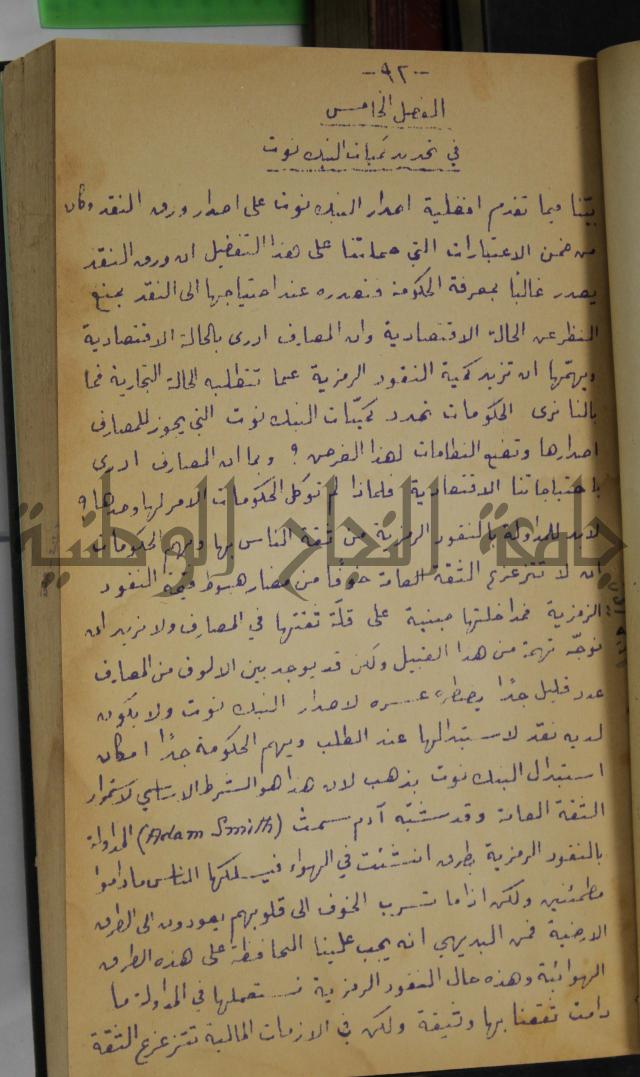 -٩٢-
الفصل الخامس
في تحديد كميات البنك نوت
بيّنا فيما تقدم افضلية اصدار البنك نوت على اصدار ورق النقد وكان
من ضمن الاعتبارات التي حملتنا على هذا التفضيل ان ورق النقد
يصدر غالبًا بمعرفة الحكومة فتصدره عند احتياجها الى النقد بمنع
النظر عن الحالة الاقتصادية وان المصارف ادرى بالحالة الاقتصادية
ويهمّها ان تزيد كمية النقود الرمزية عما تتطلبه الحالة التجارية فما
بالنا نرى الحكومات تحدد كميّات البنك نوت التي يجوز للمصارف
اصدارها وتضع النظامات لهذا الغرض ؟ وبما ان المصارف ادرى
باحتياجاتنا الاقتصادية فلماذا لم توكل الحكومات الامر لها وحدها ؟
لابد للمداولة بالنقود الرمزية من ثقة الناس بها ويهم الحكومات
ان لا تتزعزع الثقة العامة خوفًا من مضار هبوط قيمة النقود
الرمزية فمداخلتها مبنية على قلّة ثقتها في المصارف ولا نريد ان
نوجّه تهمة من هذا القبيل ولكن قد يوجد بين الالوف من المصارف
عدد قليل جدًا يضطره عسره لاصدار البنك نوت ولا يكون
لديه نقد لاستبدالها عند الطلب ويهم الحكومة جدًا امكان
استبدال البنك نوت بذهب لان هذا هو الشرط الاساسي لاستمرار
الثقة العامة وقد شبّه آدم سمث (Adam Smith) المداولة
بالنقود الرمزية بطرق انشئت في الهواء فيسلكها الناس ما داموا
مطمئنين ولكن اذا ما تسرب الخوف الى قلوبهم يعودون الى الطرق
الارضية فمن البديهي انه يجب علينا المحافظة على هذه الطرق
الهوائية وهذه حال النقود الرمزية نستعملها في المداولة ما
دامت ثقتنا بها وثيقة ولكن في الازمات المالية تتزعزع الثقة
جامعة النجاح الوطنية